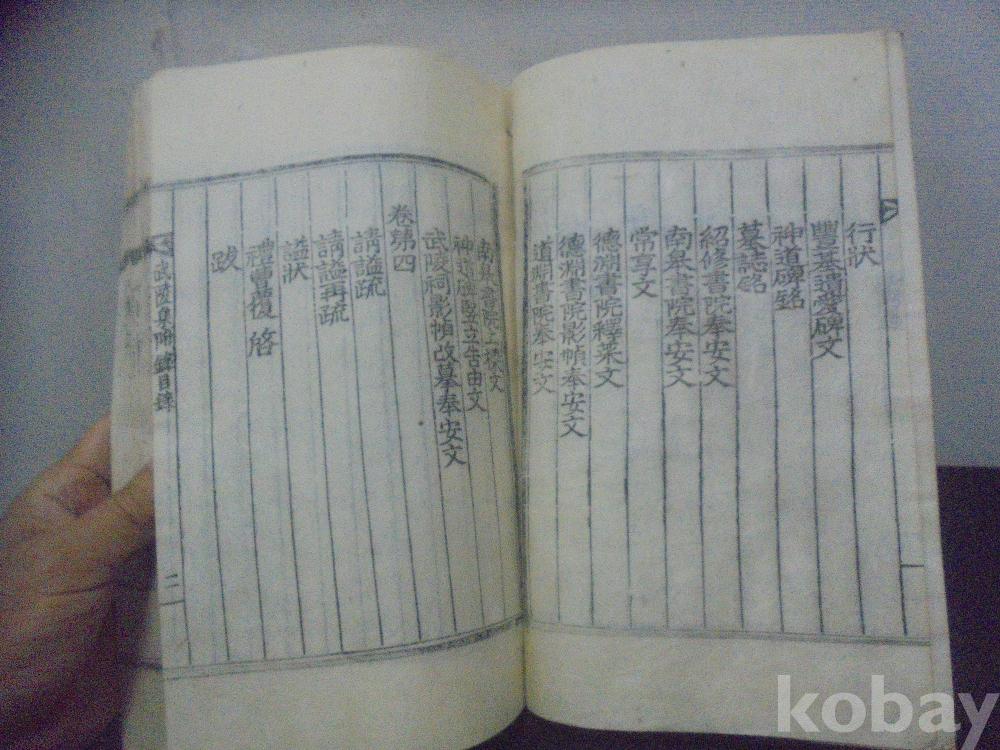 行狀
豐基遺愛碑文
神道碑銘
墓誌銘
紹修書院奉安文
南臯書院奉安文
常享文
德淵書院釋菜文
德淵書院影幀奉安文
道淵書院奉安文
南臯書院上樑文
神道碑竪立告由文
武陵祠影幀改摹奉安文
卷第四
請謚疏
請謚再疏
謚狀
禮曹覆啓
跋
武陵集附錄目錄
二
kobay